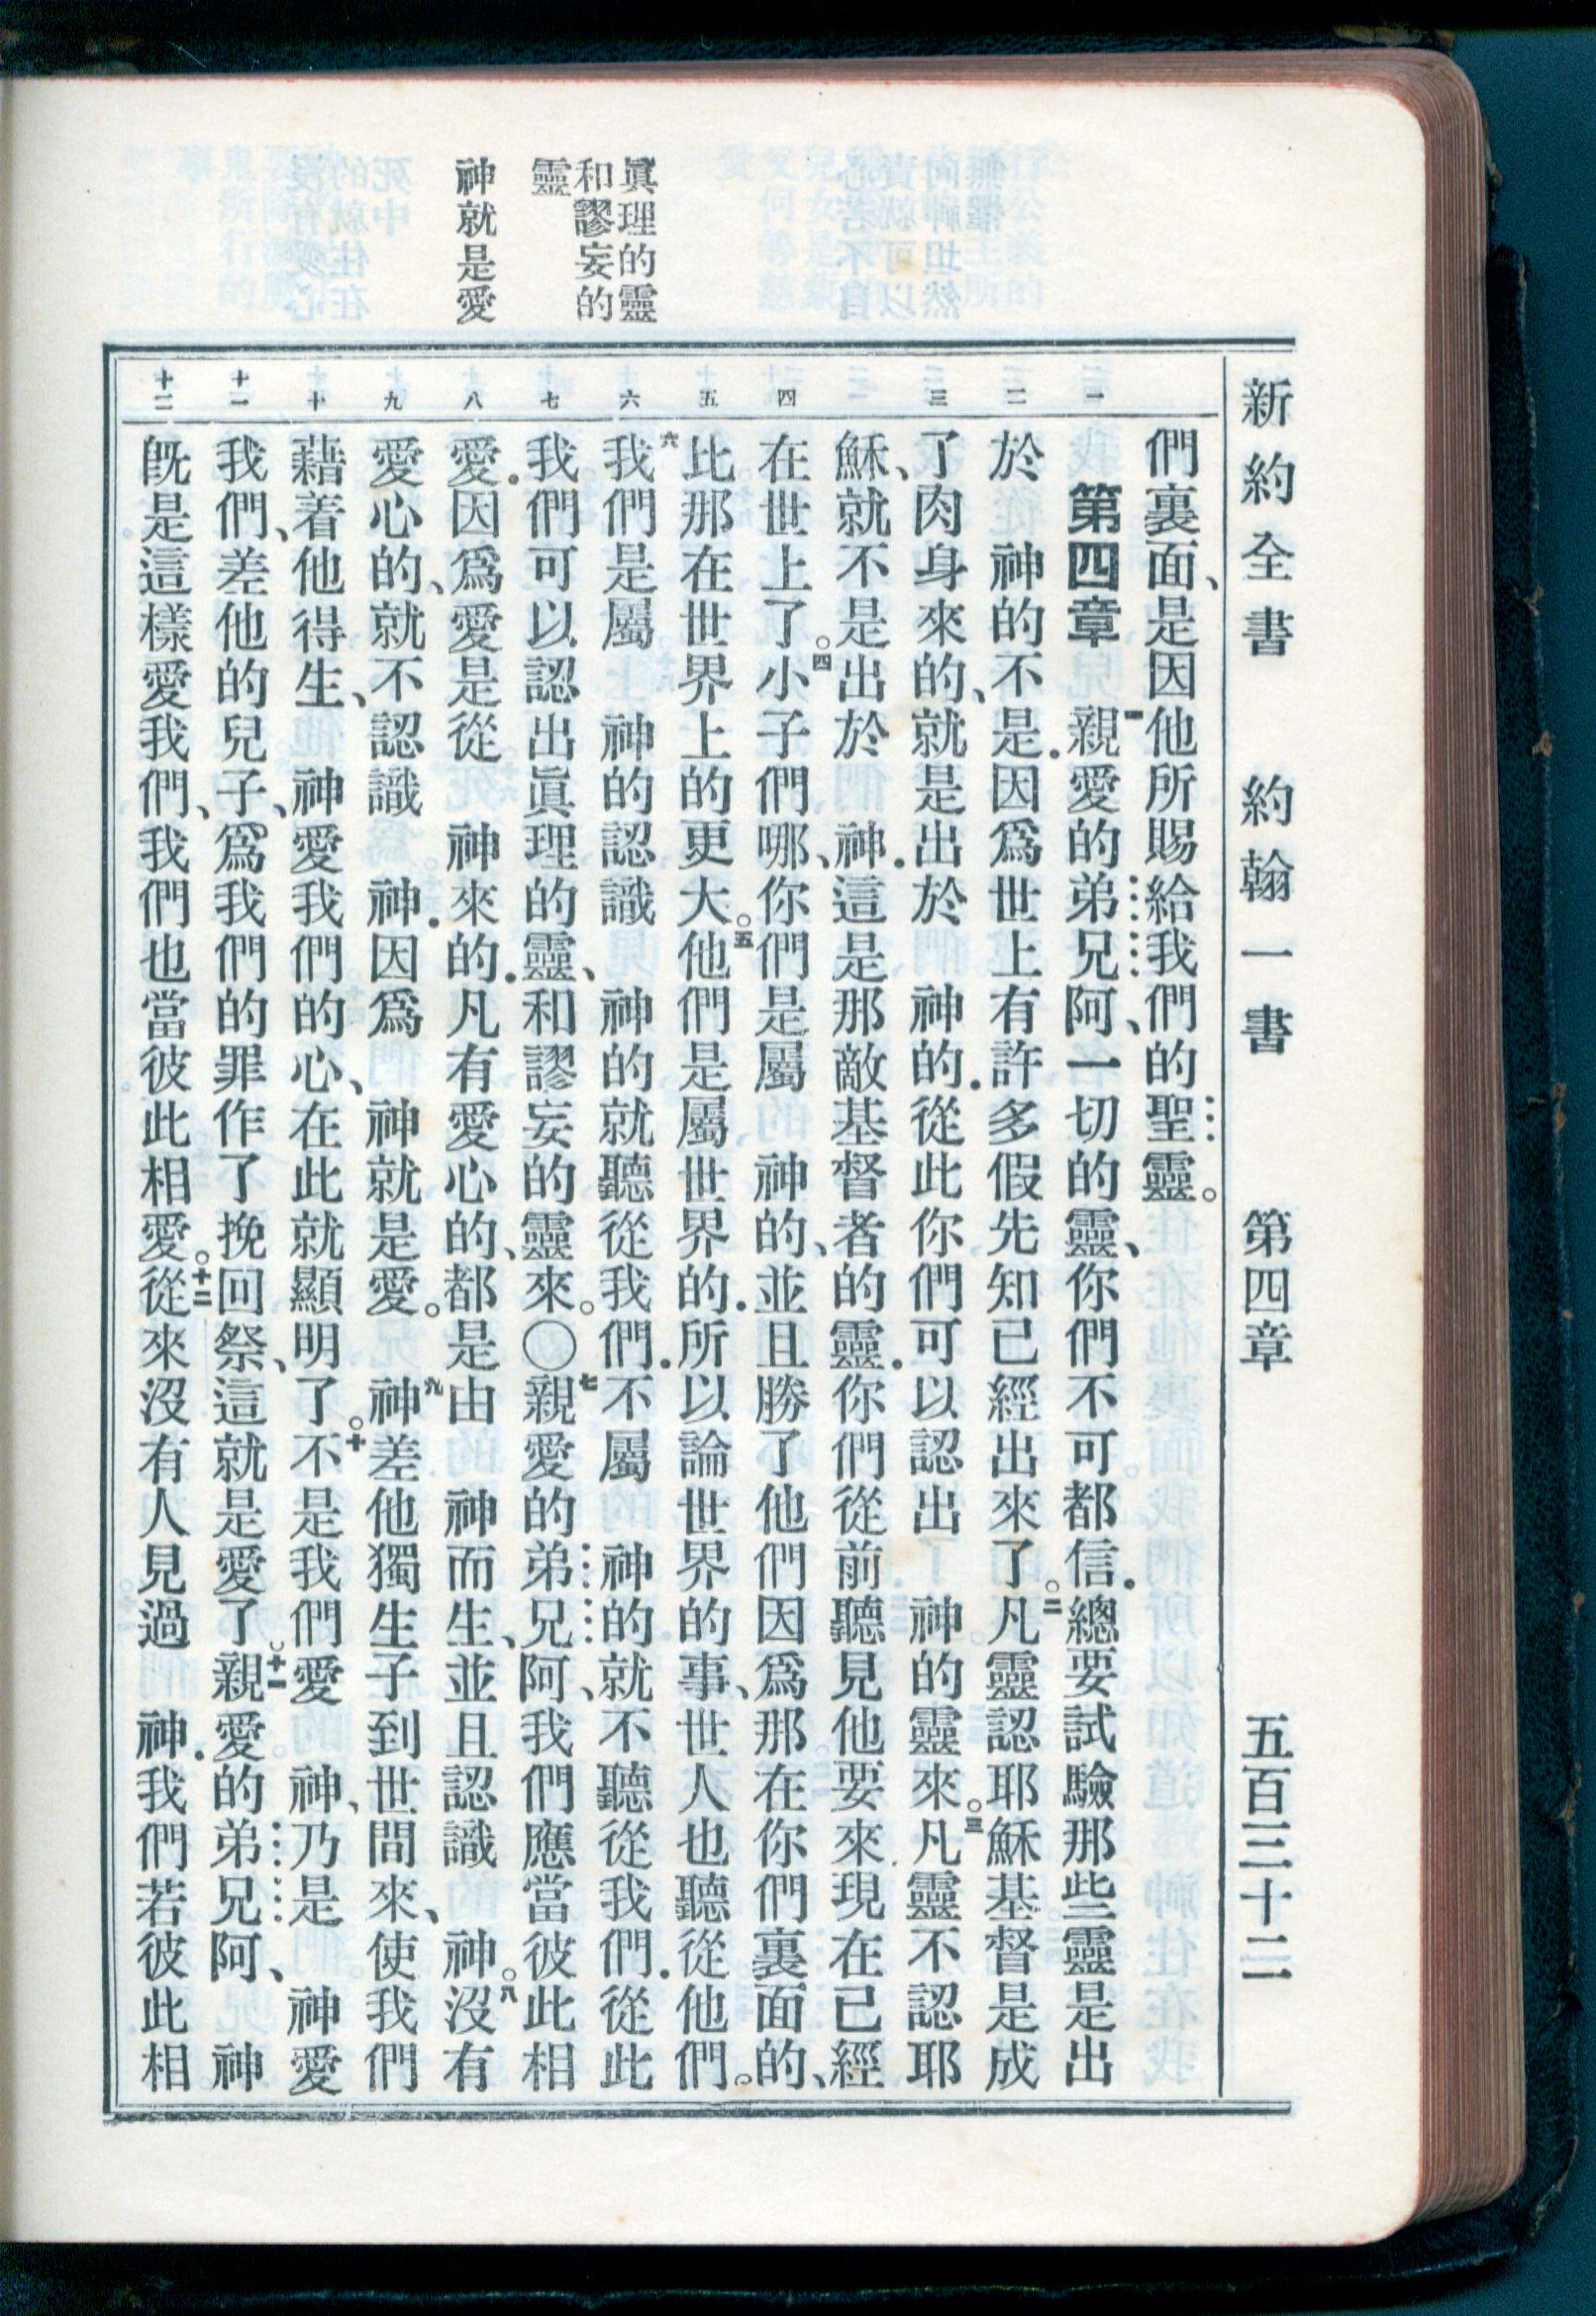 新約全書 約翰一書 第四章 五百三十二
眞理的靈
和謬妄的
靈
神就是愛
一 二 三 四 五 六 七 八 九 十 十一 十二
們裏面、是因他所賜給我們的聖靈。
第四章 一親愛的弟兄阿、一切的靈、你們不可都信．總要試驗那些靈是出
於 神的不是．因爲世上有許多假先知已經出來了。二凡靈認耶穌基督是成
了肉身來的、就是出於 神的．從此你們可以認出 神的靈來。三凡靈不認耶
穌、就不是出於 神．這是那敵基督者的靈．你們從前聽見他要來．現在已經
在世上了。四小子們哪、你們是屬 神的、並且勝了他們因爲那在你們裏面的、
比那在世界上的更大。五他們是屬世界的．所以論世界的事、世人也聽從他們。
六我們是屬 神的認識 神的就聽從我們．不屬 神的就不聽從我們．從此
我們可以認出眞理的靈、和謬妄的靈來。〇七親愛的弟兄阿、我們應當彼此相
愛．因爲愛是從 神來的．凡有愛心的、都是由 神而生、並且認識 神。八沒有
愛心的、就不認識 神．因爲 神就是愛。九神差他獨生子到世間來、使我們
藉着他得生、 神愛我們的心、在此就顯明了。十不是我們愛 神、乃是 神愛
我們、差他的兒子、爲我們的罪作了挽回祭、這就是愛了。十一親愛的弟兄阿、 神
旣是這樣愛我們、我們也當彼此相愛。十二從來沒有人見過 神．我們若彼此相